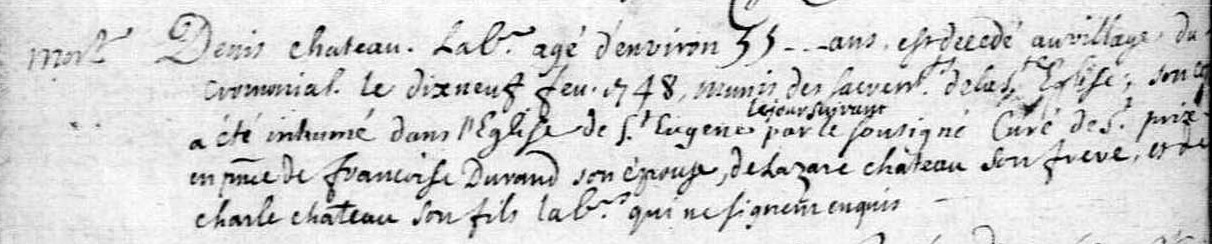 mort Denis chateau. Labr. agé d'environ 55 - - - ans, est decedé au village du
cromonial. le dixneuf feu. 1748, munis des sacremts. de la Ste Eglise, son
a été inhumé dans l'Eglise de St Eugene le jour suivant par le sousigné Curé de St. prix
en pnce de francoise Durand son épouse, de Lazare château son frere, et de
charle chateau son fils labr. qui ne signent enquis